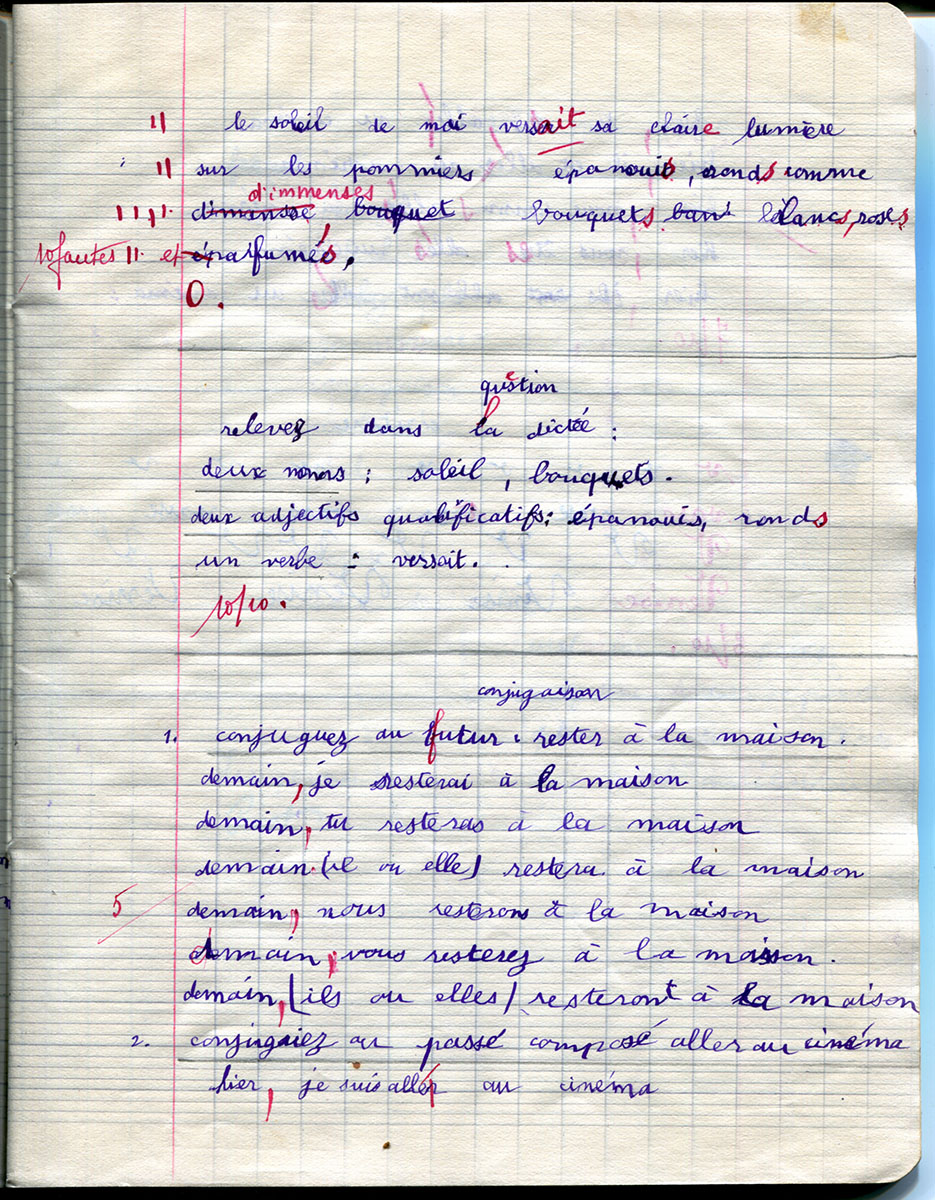 11 le soleil de mai versait sa claire lumière
11 sur les pommiers épanouis, ronds comme
d'immenses
1111. bouquet bouquets blancs, roses
10 fautes 11. et parfumés.
0.
question
relevez dans la dictée :
deux noms : soleil, bouquets.
deux adjectifs qualificatifs : épanouis, ronds
un verbe : versait.
10/10.
conjugaison
1. conjuguez au futur : rester à la maison.
demain, je resterai à la maison
demain, tu resteras à la maison
demain. (il ou elle) restera à la maison
5 demain, nous resterons à la maison
demain, vous resterez à la maison.
demain, (ils ou elles) resteront à la maison
2. conjugaiez au passé composé aller au cinéma
hier, je suis allé au cinéma